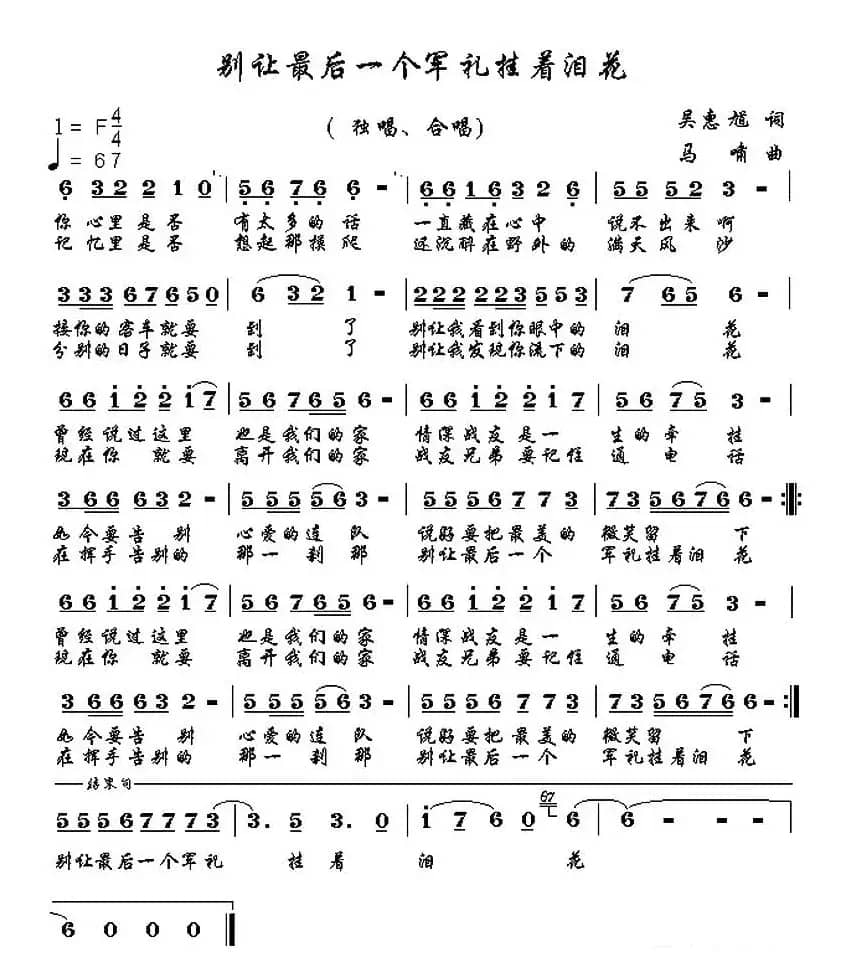 别让最后一个军礼挂着泪花
1 = F 4/4
(独唱、合唱)
吴惠尴 词
♩ = 67
马啃 曲
6 3 2 2 1 0 | 5 6 7 6 6 - | 6 6 1 6 3 2 6 | 5 5 5 2 3 - |
你心里是否 有太多的话 一直藏在心中 说不出来啊
记忆里是否 想起那摸爬 还沉醉在野外的 满天风沙
3 3 3 6 7 6 5 0 | 6 3 2 1 - | 2 2 2 2 2 2 3 5 5 3 | 7 6 5 6 - |
接你的客车就要 到了 别让我看到你眼中的泪花
分别的日子就要 到了 别让我发现你流下的泪花
6 6 1 2 2 1 7 | 5 6 7 6 5 6 - | 6 6 1 2 2 1 7 | 5 6 7 5 3 - |
曾经说过这里 也是我们的家 情深战友是一 生的牵挂
现在你就要 离开我们的家 战友兄弟要记住 通电话
3 6 6 6 3 2 - | 5 5 5 5 6 3 - | 5 5 5 6 7 7 3 | 7 3 5 6 7 6 6 - :||:
如今要告别 心爱的连队 说好要把最美的 微笑留下
在挥手告别的 那一刹那 别让最后一个 军礼挂着泪花
6 6 1 2 2 1 7 | 5 6 7 6 5 6 - | 6 6 1 2 2 1 7 | 5 6 7 5 3 - |
曾经说过这里 也是我们的家 情深战友是一 生的牵挂
现在你就要 离开我们的家 战友兄弟要记住 通电话
3 6 6 6 3 2 - | 5 5 5 5 6 3 - | 5 5 5 6 7 7 3 | 7 3 5 6 7 6 6 - :||
如今要告别 心爱的连队 说好要把最美的 微笑留下
在挥手告别的 那一刹那 别让最后一个 军礼挂着泪花
结束句
5 5 5 6 7 7 7 3 | 3. 5 3. 0 | 1 7 6 0 67 6 | 6 - - - |
别让最后一个军礼 挂着 泪花
6 0 0 0 ||